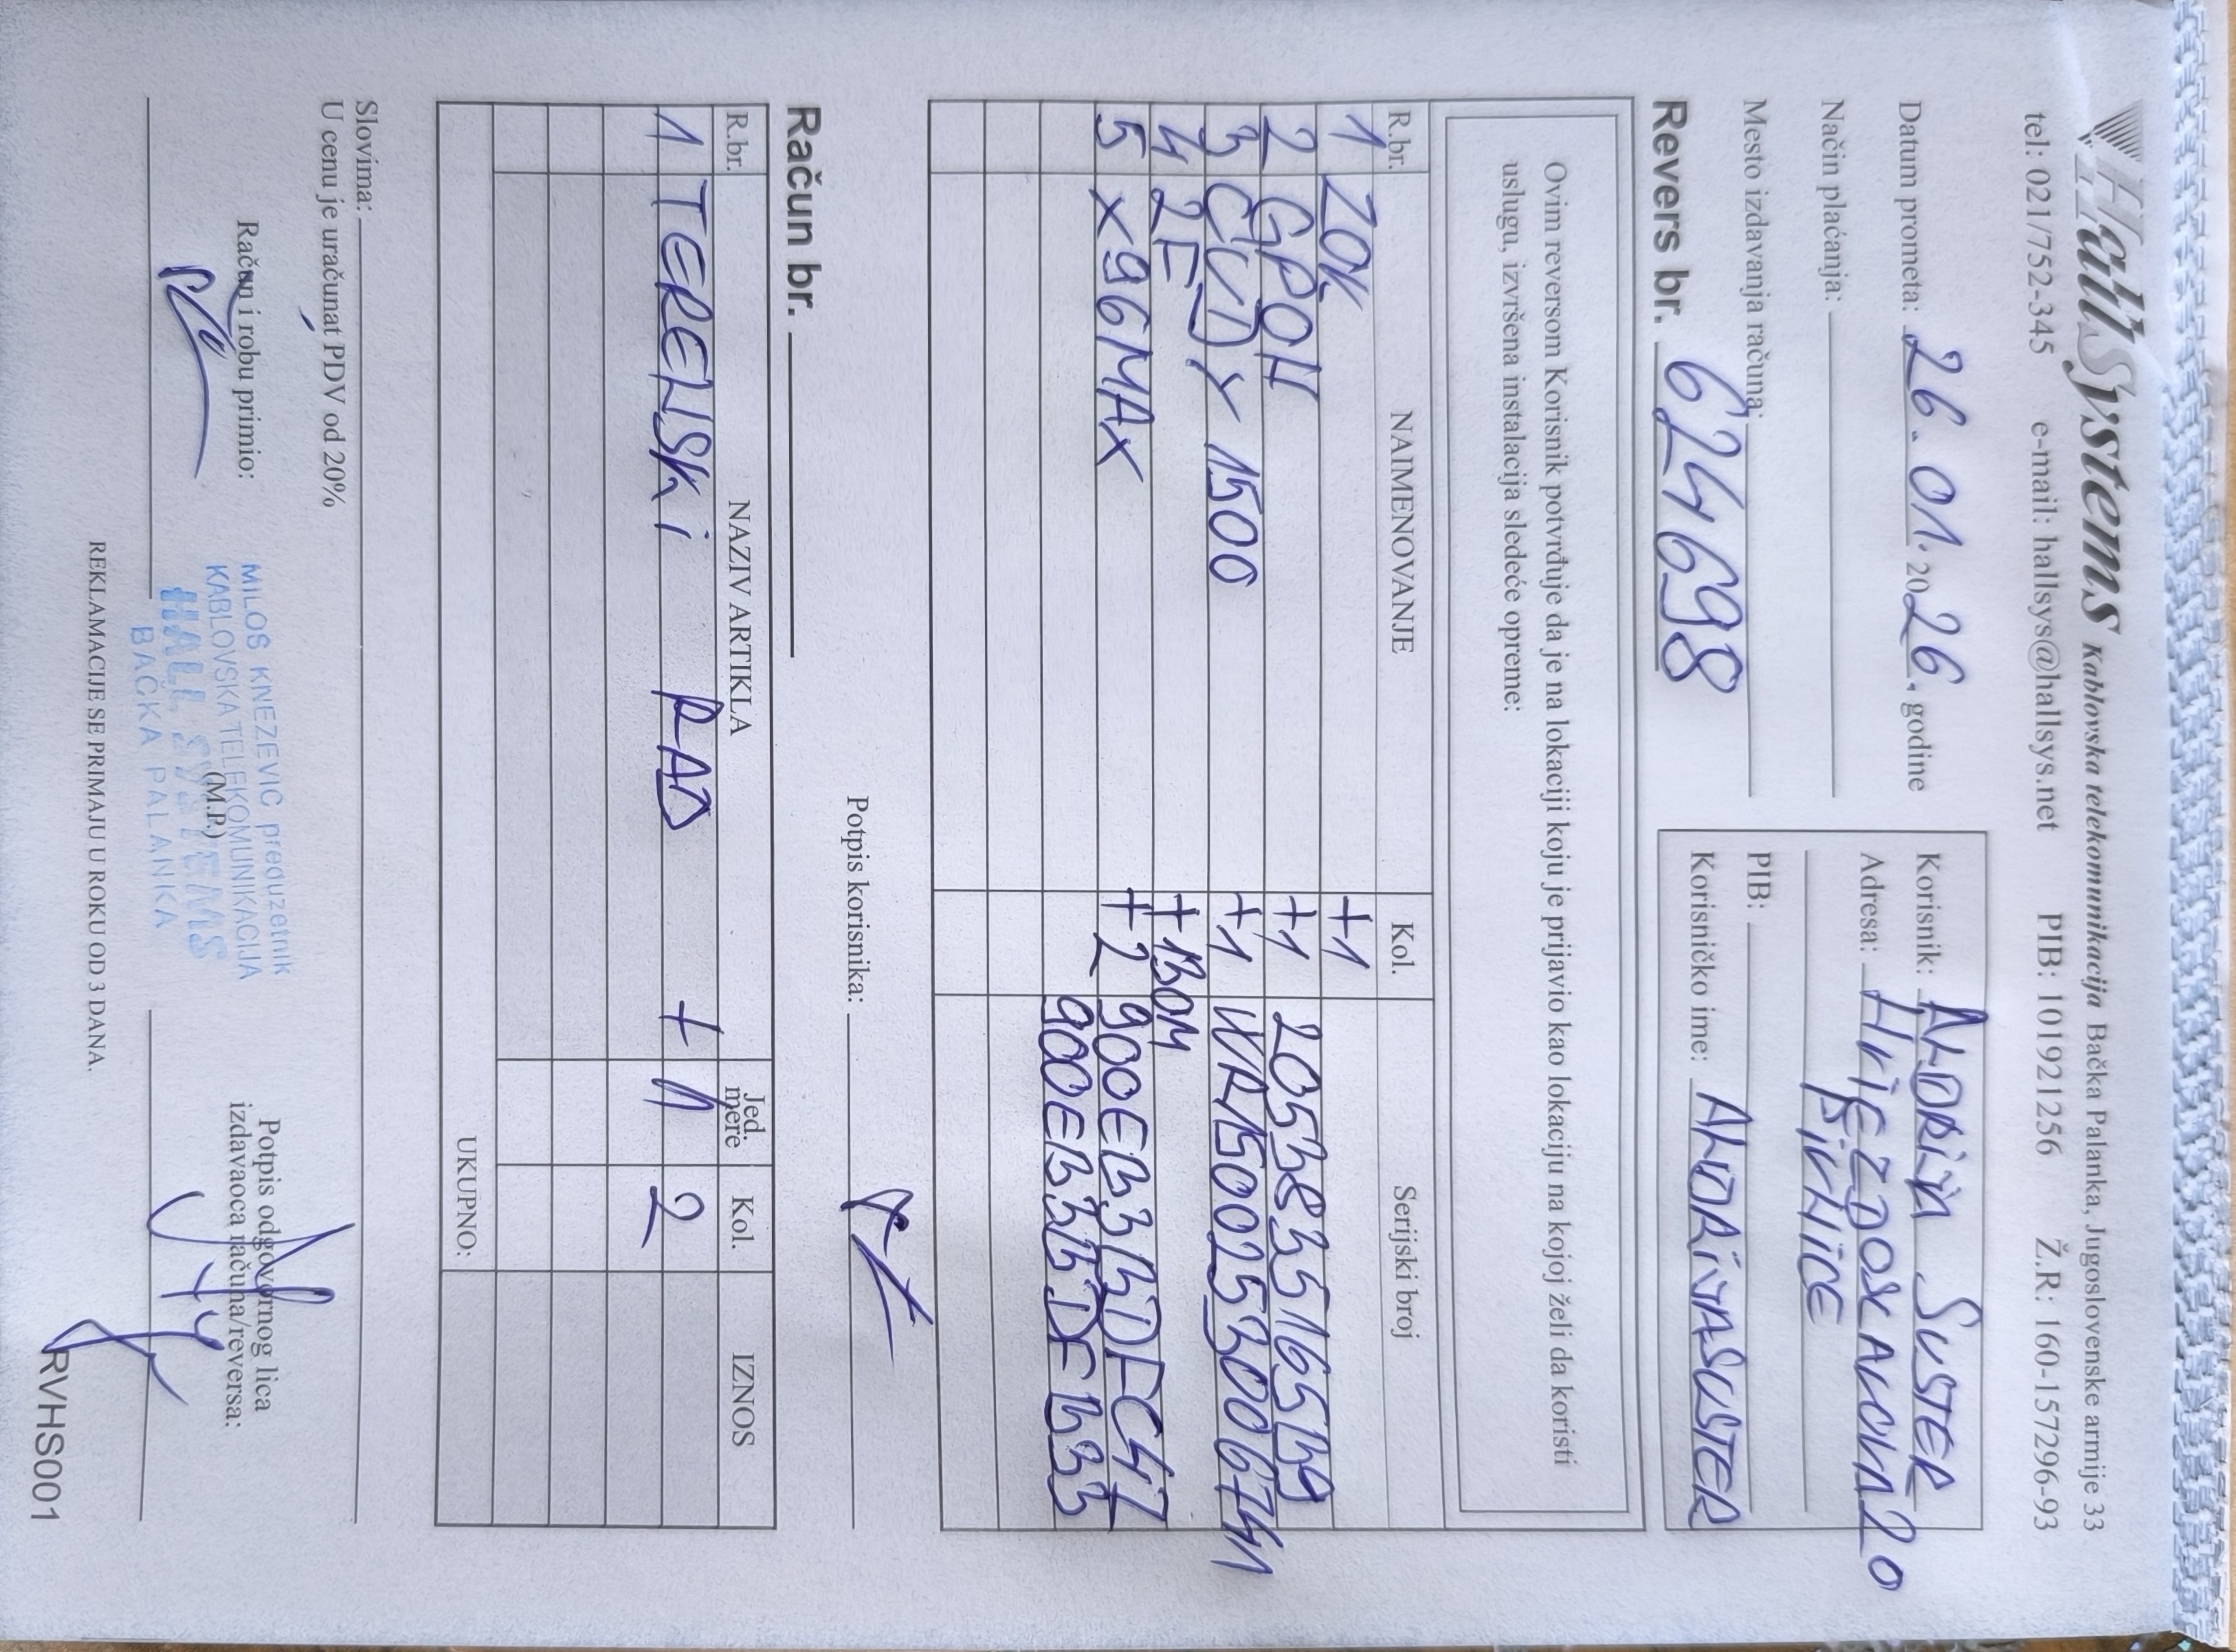 HallSystems Kablovska telekomunikacija Bačka Palanka, Jugoslovenske armije 33
tel: 021/752-345 e-mail: hallsys@hallsys.net PIB: 101921256 Ž.R: 160-157296-93
Datum prometa: 26. 01. 2026. godine
Način plaćanja:
Mesto izdavanja računa:
Revers br. 624698
Korisnik: SUSTER
Adresa: 20
PIB:
Korisničko ime:
Ovim reversom Korisnik potvrđuje da je na lokaciji koju je prijavio kao lokaciju na kojoj želi da koristi
uslugu, izvršena instalacija sledeće opreme:
R.br. NAIMENOVANJE Kol. Serijski broj
1 ZOK +1
2 GPON +1
3 CUDY 1500 +1
4 2F +130M
5 X96MAX +2
Potpis korisnika:
Račun br.
R.br. NAZIV ARTIKLA Jed. mere Kol. IZNOS
1 TERENSKI RAD + 1 2
UKUPNO:
Slovima:
U cenu je uračunat PDV od 20%
Račun i robu primio:
MILOŠ KNEŽEVIĆ preduzetnik
KABLOVSKA TELEKOMUNIKACIJA
HALL SYSTEMS
BAČKA PALANKA
(M.P.)
Potpis odgovornog lica
izdavaoca računa/reversa:
REKLAMACIJE SE PRIMAJU U ROKU OD 3 DANA.
RVHS001